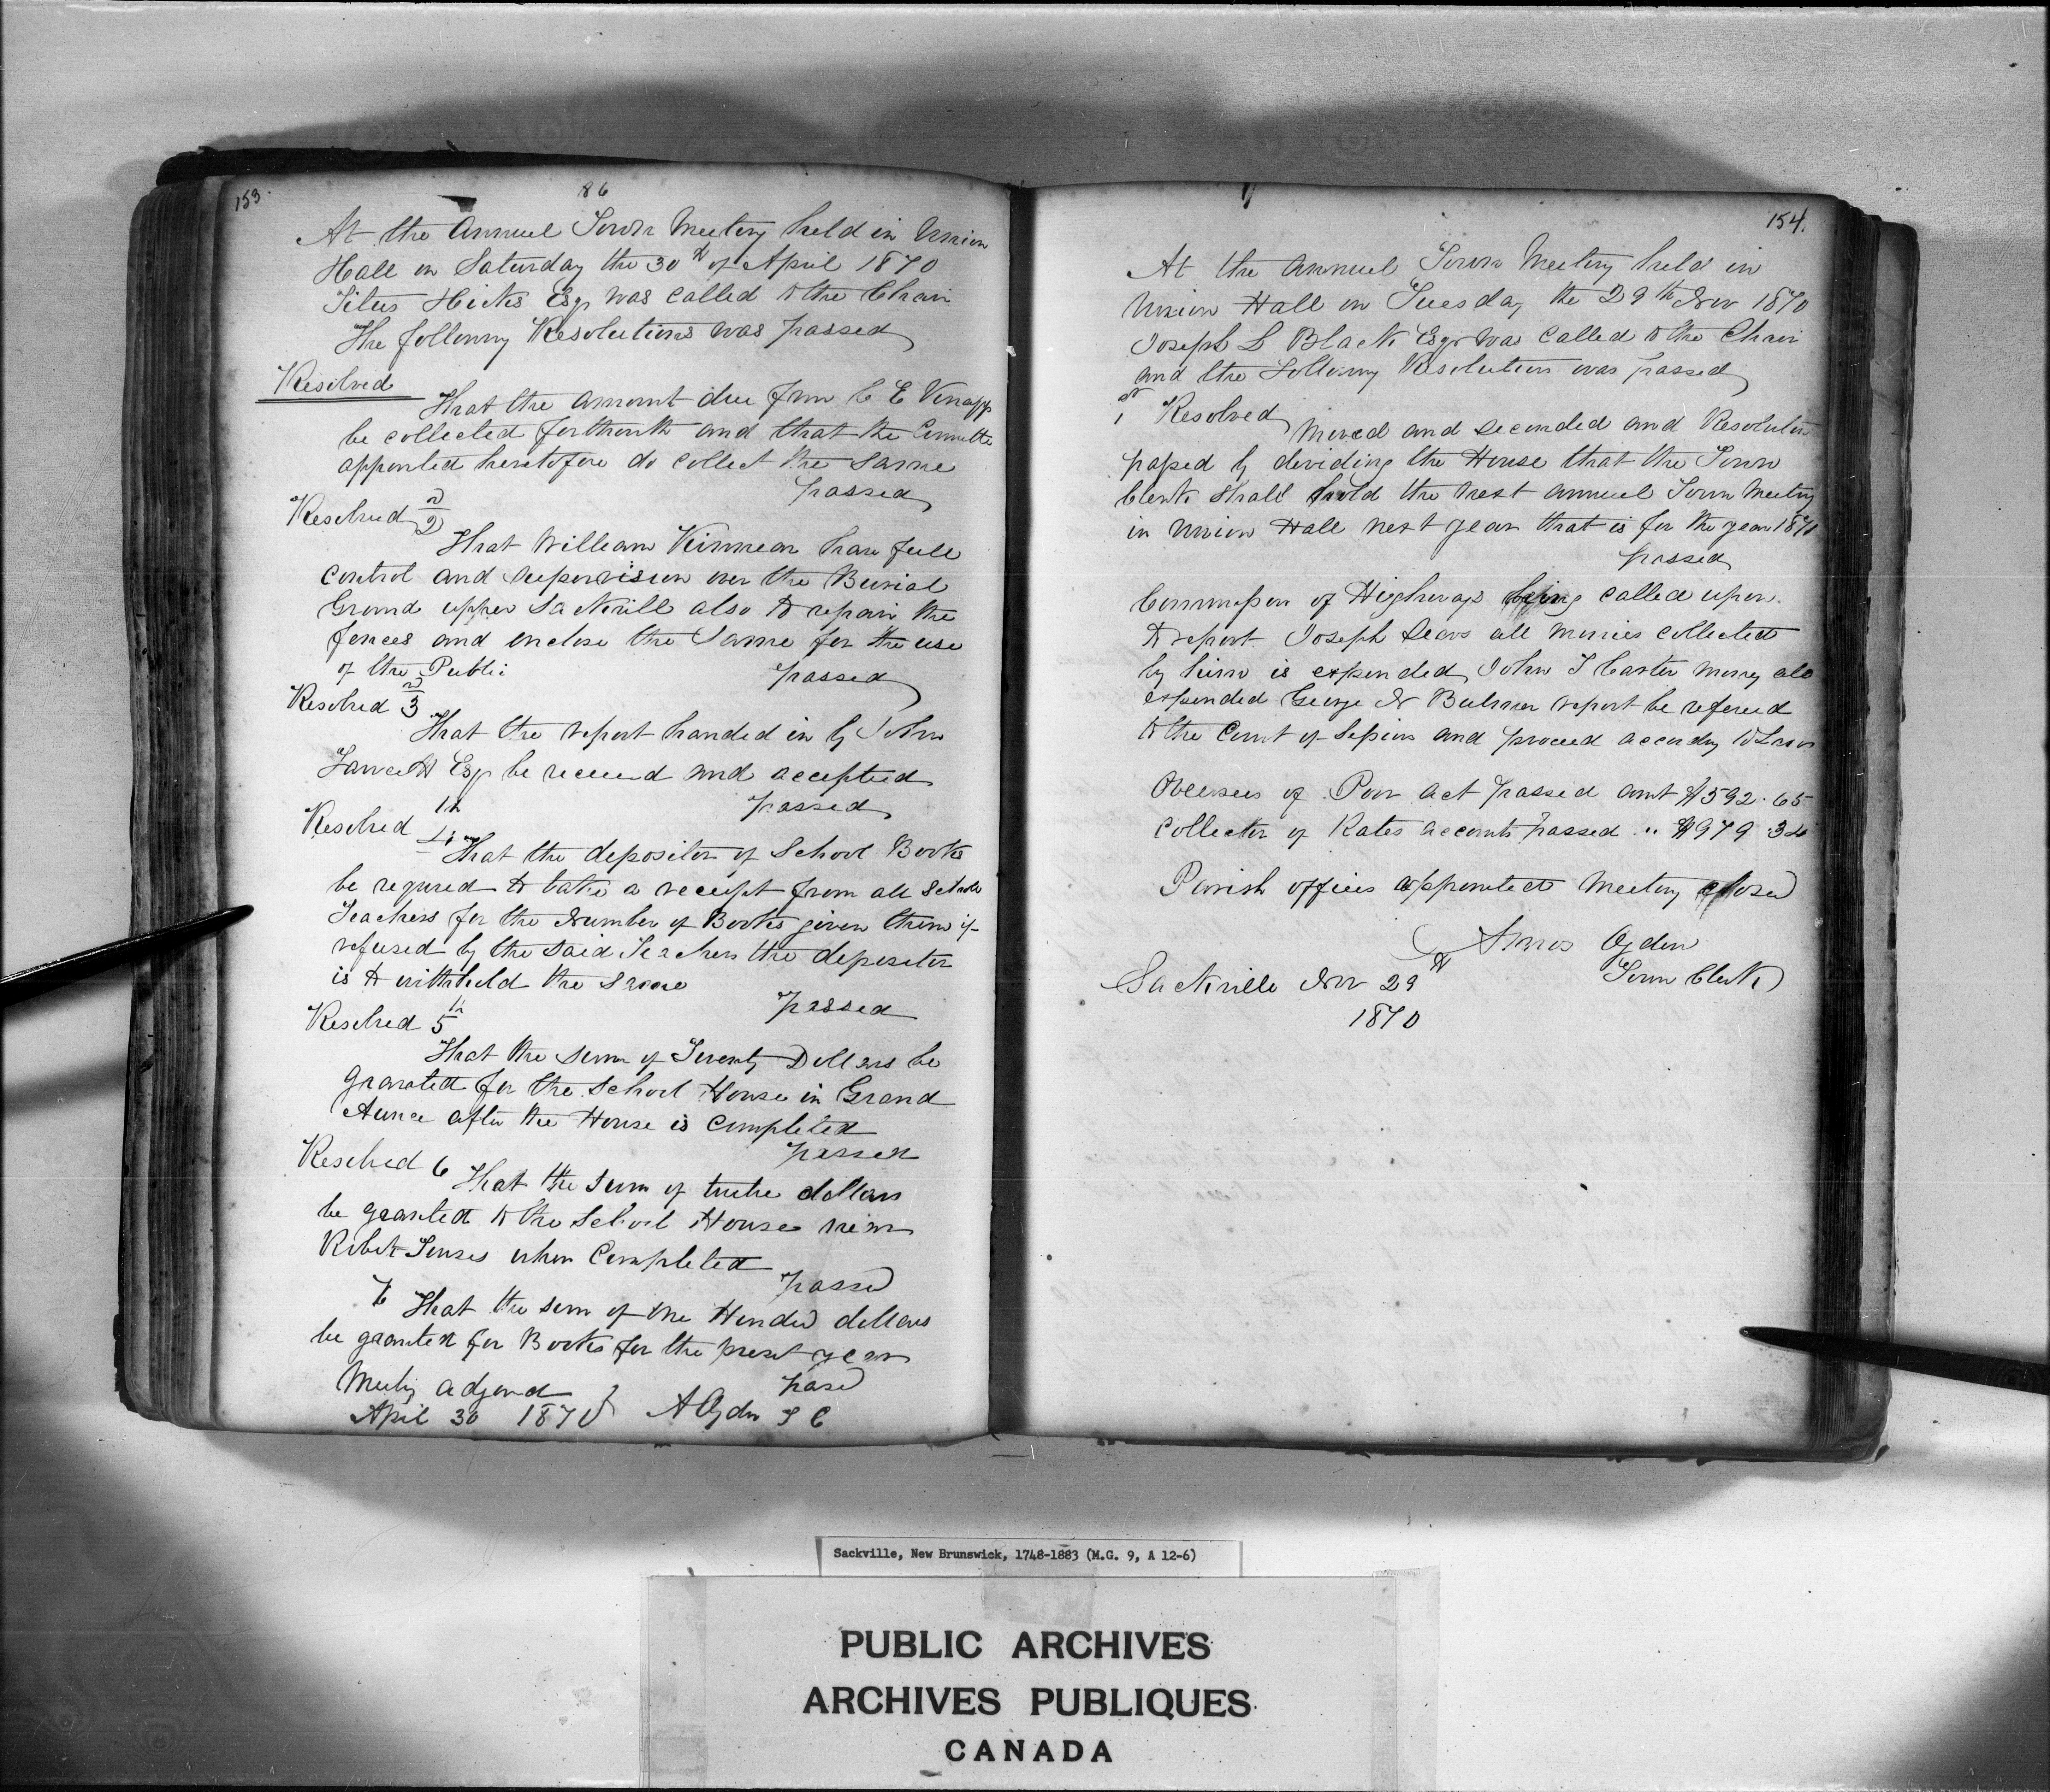 153.
86
At the Annuel Town Meeting held in Union
Hall on Saturday the 30th of April 1870
Titus Hicks Esqr was called to the Chair
The following Resolutions was passed
Resolved
That the amount due from C E
be collected forthwith and that the Committe
appointed heretofore do collect the same
passed
Resolved 2d
That William Kinnear have full
control and supervision over the Burial
Ground upper Sackvill also to repair the
fences and enclose the same for the use
of the Public
passed
Resolved 3d
That the report handed in by John
Fawcett Esqr be received and accepted
passed
Resolved 4th
That the depositor of School Books
be required to take a receipt from all School
Teachers for the Number of Books given them if
refused by the said Teachers the depositor
is to withhold the same
passed
Resolved 5th
That the sum of Twenty Dollars be
granted for the School House in Grand
after the House is completed
passed
Resolved 6
That the sum of twelve dollars
be granted to the School House near
Robert when Completed
passed
7 That the sum of one Hundred dollars
be granted for Books for the present year
Meeting adjourned
passed
April 30 1870 A Ogden T C
154.
At the annuel Town Meeting held in
Union Hall on Tuesday the 29th Nov 1870
Joseph L Black Esqr was called to the Chair
and the following Resolution was passed
1st Resolved
Moved and seconded and Resolution
passed by deviding the House that the Town
Clerk shall hold the next annuel Town Meeting
in Union Hall next year that is for the year 1871
passed
of Highways being called upon
to report. Joseph Sears all monies collected
by him is expended, John T Carter money all
expended George N Bulmer report be refered
to the Court of Sessions and proceed according to Law
Overseers of Poor act passed amt $592.65
Collector of Rates accounts passed " $979.34
Parish offices appointed Meeting closed
Amos Ogden
Town Clerk
Sackville Nov 29th
1870
Sackville, New Brunswick, 1748-1883 (M.G. 9, A 12-6)
PUBLIC ARCHIVES
ARCHIVES PUBLIQUES
CANADA